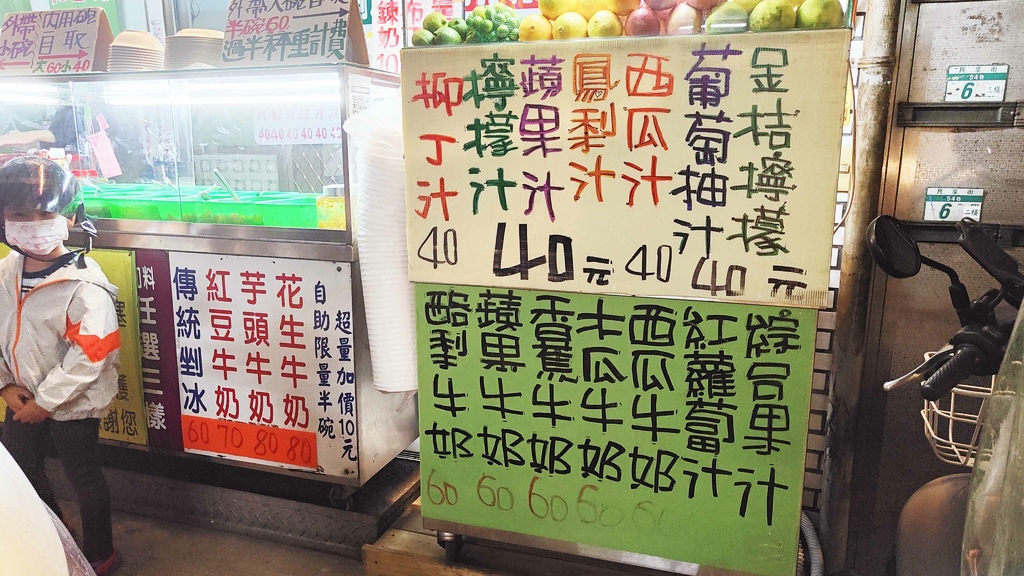 外帶
小碗
內用碗
自取
大60小40
外帶大碗自取
半碗60
過半秤重計費
40 40 40 40 40 42
料任選三樣
謝謝您
傳統剉冰
紅豆牛奶
芋頭牛奶
花生牛奶
60 70 80 80
自助限量半碗
超量加價10元
柳丁汁
檸檬汁
蘋果汁
鳳梨汁
西瓜汁
葡萄柚汁
金桔檸檬
40 40元 40 40元
酪梨牛奶
蘋果牛奶
香蕉牛奶
木瓜牛奶
西瓜牛奶
紅蘿蔔汁
綜合果汁
60 60 60 60 60
民享街
54巷
6 二樓
民享街
54巷
6 二樓